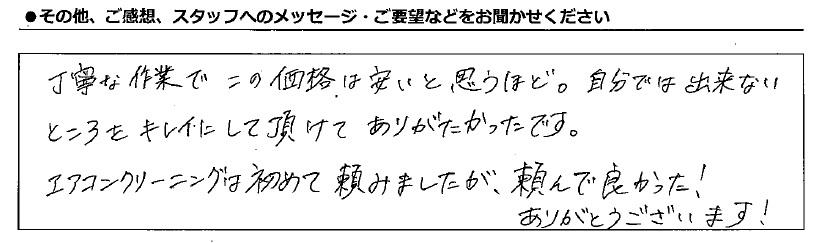 ●その他、ご感想、スタッフへのメッセージ・ご要望などをお聞かせください
丁寧な作業でこの価格は安いと思うほど。自分では出来ない
ところをキレイにして頂けてありがたかったです。
エアコンクリーニングは初めて頼みましたが、頼んで良かった!
ありがとうございます!